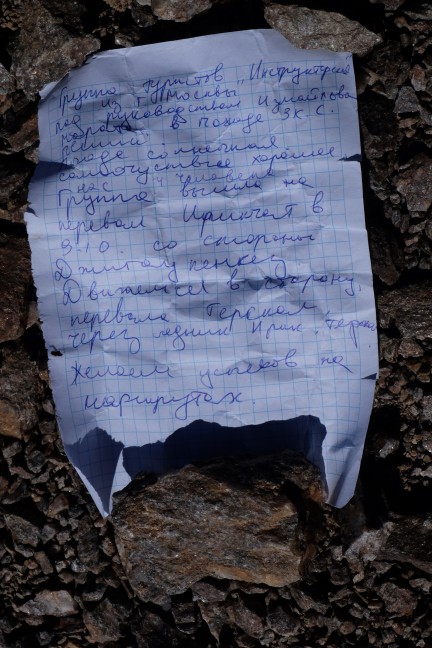 Группа туристов "Инструкторской
из г. Москвы
под руководством Измайлова
пеший в походе 3 к.с.
погода солнечная
самочувствие хорошее
нас 4 человека
Группа вышла на
перевал Ирикчат в
9-10 со стороны
Движемся в сторону
перевала Терскол,
через ледник Ирик.
Желаем успехов на
маршрутах.